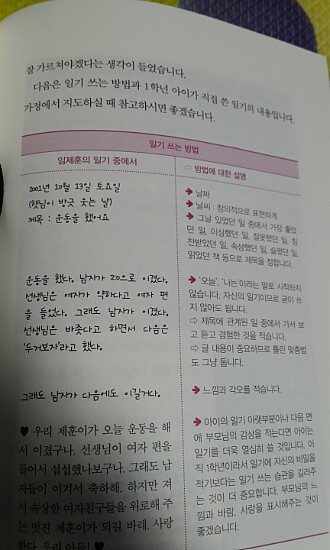 잘 가르쳐야겠다는 생각이 들었습니다.
다음은 일기 쓰는 방법과 1학년 아이가 직접 쓴 일기의 내용입니다.
가정에서 지도하실 때 참고하시면 좋겠습니다.
일기 쓰는 방법
임제훈의 일기 중에서
⇨ 방법에 대한 설명
2001년 10월 13일 토요일
(햇님이 방긋 웃는 날)
제목 : 운동을 했어요
➔ 날짜
➔ 날씨 : 창의적으로 표현하게
➔ 그날 있었던 일 중에서 가장 좋았
던 일, 이상했던 일, 잘못했던 일, 칭
찬받았던 일, 속상했던 일, 슬펐던 일,
읽었던 책 등으로 제목을 정합니다.
운동을 했다. 남자가 2:0으로 이겼다.
선생님은 여자가 약하다고 여자 편
을 들었다. 그래도 남자가 이겼다.
선생님은 바쁘다고 하면서 다음은
'두거보자'라고 했다.
➔ '오늘', '나는'이라는 말로 시작하지
않습니다. 자신의 일기이므로 굳이 쓰
지 않아도 됩니다.
⇨ 제목에 관계된 일 중에서 가서 보
고 듣고 경험한 것을 적습니다.
⇨ 글 내용이 중요하므로 틀린 맞춤법
도 그냥 둡니다.
그래도 남자가 다음에도 이길거다.
➔ 느낌과 각오를 적습니다.
♥ 우리 제훈이가 오늘 운동을 해
서 이겼구나. 선생님이 여자 편을
들어서 섭섭했나보구나. 그래도 남
자들이 이겨서 축하해. 하지만 져
서 속상한 여자친구들을 위로해 주
는 멋진 제훈이가 되길 바래. 사랑
한다. 우리 아들!
➔ 아이의 일기 아랫부분이나 다음 면
에 부모님의 감상을 적는다면 아이는
일기를 더욱 열심히 쓸 것입니다. 아
직 1학년이라서 일기에 자신의 비밀을
적기보다는 일기 쓰는 습관을 길러주
는 것이 더 중요합니다. 부모님의 느
낌과 바람, 사랑을 표시해주는 것이
좋겠습니다.